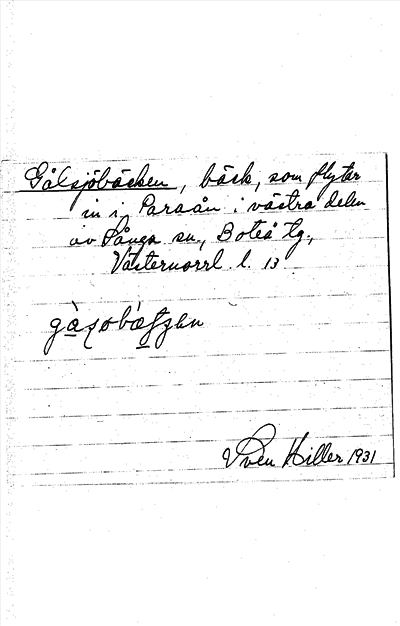 Gålsjöbäcken, bäck, som flyter
in i Paraån i västra delen
av Sånga sn., Boteå tg.,
Västernorrl. l. 13
Sven Hiller 1931